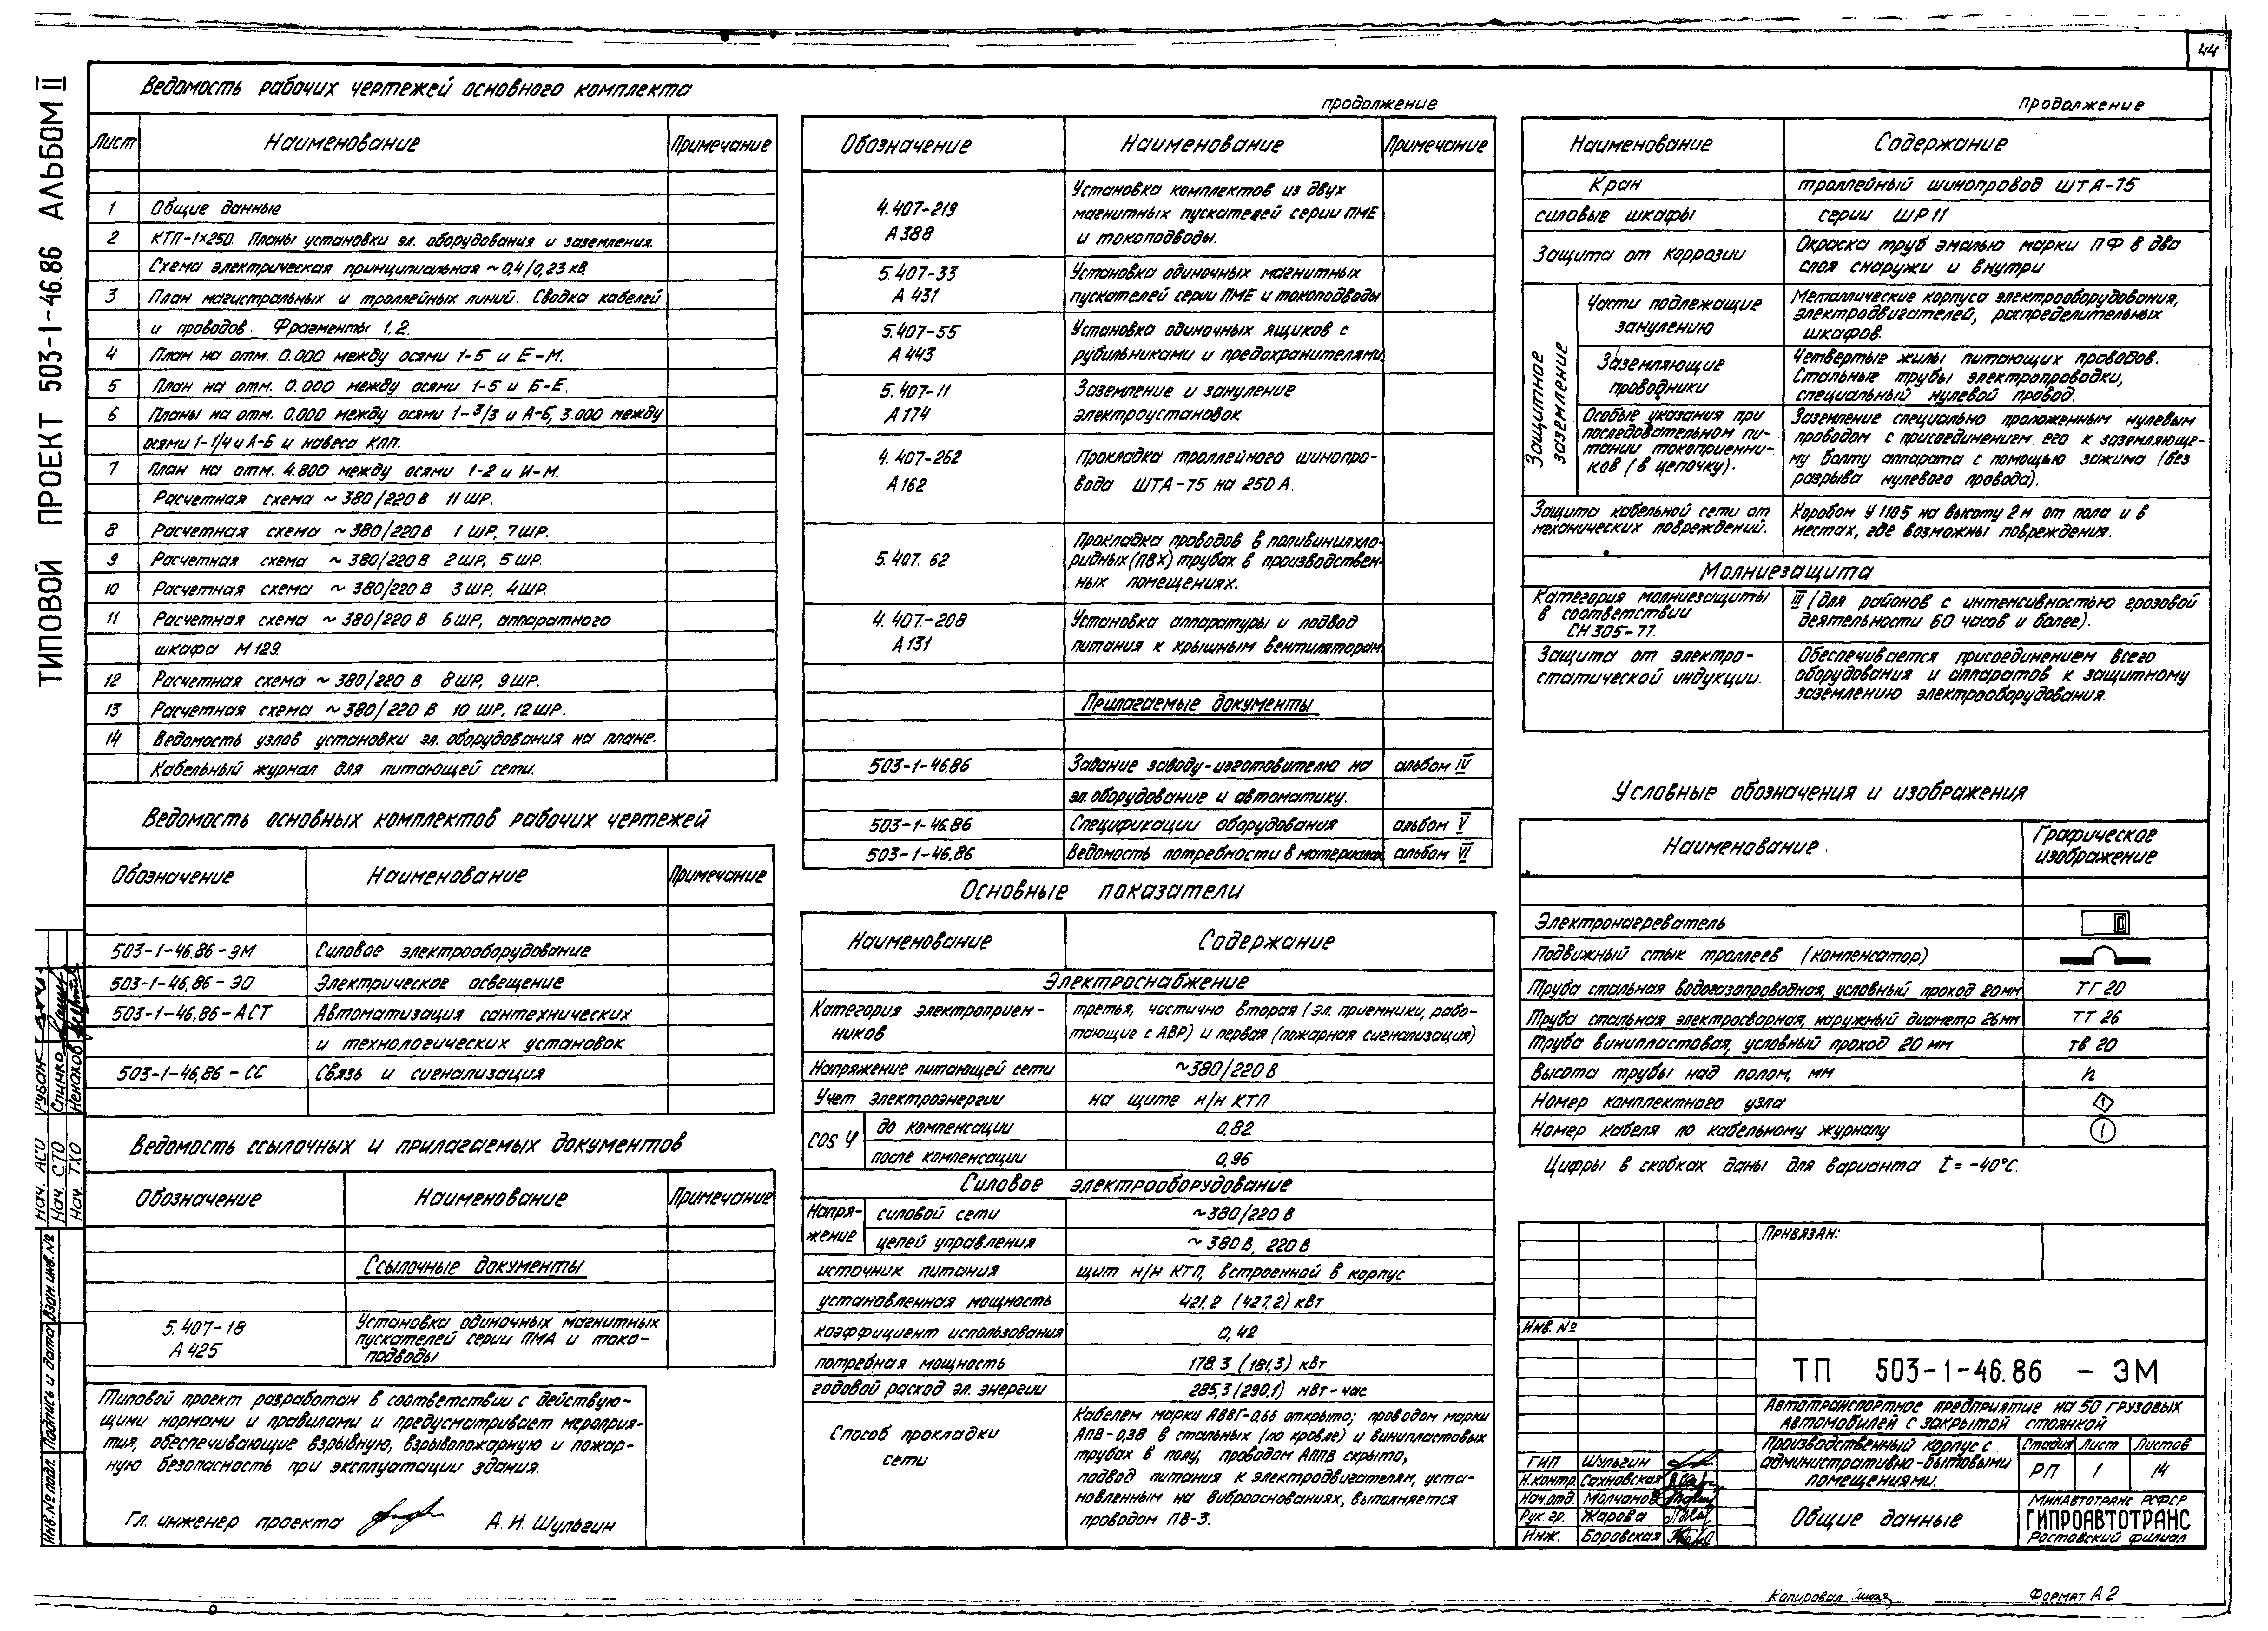 44
ТИПОВОЙ ПРОЕКТ 503-1-46.86 АЛЬБОМ II
Ведомость рабочих чертежей основного комплекта
Лист Наименование Примечание
1 Общие данные
2 КТП-1×250. Планы установки эл. оборудования и заземления.
Схема электрическая принципиальная ~0,4/0,23 кв.
3 План магистральных и троллейных линий. Сводка кабелей
и проводов. Фрагменты 1.2.
4 План на отм. 0.000 между осями 1-5 и Е-М.
5 План на отм. 0.000 между осями 1-5 и Б-Е.
6 Планы на отм. 0.000 между осями 1-3/3 и А-Б, 3.000 между
осями 1-1/4 и А-Б и навеса КПП.
7 План на отм. 4.800 между осями 1-2 и И-М.
Расчетная схема ~380/220 В 11 ШР.
8 Расчетная схема ~380/220 В 1 ШР, 7 ШР.
9 Расчетная схема ~380/220 В 2 ШР, 5 ШР.
10 Расчетная схема ~380/220 В 3 ШР, 4 ШР.
11 Расчетная схема ~380/220 В 6 ШР, аппаратного
шкафа М 129.
12 Расчетная схема ~380/220 В 8 ШР, 9 ШР.
13 Расчетная схема ~380/220 В 10 ШР, 12 ШР.
14 Ведомость узлов установки эл. оборудования на плане.
Кабельный журнал для питающей сети.
Ведомость основных комплектов рабочих чертежей
Обозначение Наименование Примечание
503-1-46.86-ЭМ Силовое электрооборудование
503-1-46.86-ЭО Электрическое освещение
503-1-46.86-АСТ Автоматизация сантехнических
и технологических установок
503-1-46.86-СС Связь и сигнализация
Ведомость ссылочных и прилагаемых документов
Обозначение Наименование Примечание
Ссылочные документы
5.407-18
А 425
Установка одиночных магнитных
пускателей серии ПМА и токо-
подводы
Типовой проект разработан в соответствии с действую-
щими нормами и правилами и предусматривает мероприя-
тия, обеспечивающие взрывную, взрывопожарную и пожар-
ную безопасность при эксплуатации здания.
Гл. инженер проекта А.И. Шульгин
Нач. АСО Рубан
Нач. СТО Спинко
Нач. ТХО Ненахов
Взам. инв. №
Подпись и дата
Инв. № подл.
продолжение
Обозначение Наименование Примечание
4.407-219
А 388
Установка комплектов из двух
магнитных пускателей серии ПМЕ
и токоподводы.
5.407-33
А 431
Установка одиночных магнитных
пускателей серии ПМЕ и токоподводы
5.407-55
А 443
Установка одиночных ящиков с
рубильниками и предохранителями
5.407-11
А 174
Заземление и зануление
электроустановок
4.407-262
А 162
Прокладка троллейного шинопро-
вода ШТА-75 на 250 А.
5.407.62
Прокладка проводов в поливинилхло-
ридных (ПВХ) трубах в производствен-
ных помещениях.
4.407-208
А 131
Установка аппаратуры и подвод
питания к крышным вентиляторам.
Прилагаемые документы
503-1-46.86 Задание заводу-изготовителю на альбом IV
эл. оборудование и автоматику.
503-1-46.86 Спецификации оборудования альбом V
503-1-46.86 Ведомость потребности в материалах альбом VI
Основные показатели
Наименование Содержание
Электроснабжение
Категория электроприем-
ников
третья, частично вторая (эл. приемники, рабо-
тающие с АВР) и первая (пожарная сигнализация)
Напряжение питающей сети ~380/220 В
Учет электроэнергии на щите н/н КТП
cos φ до компенсации 0,82
после компенсации 0,96
Силовое электрооборудование
Напря-
жение
силовой сети ~380/220 В
цепей управления ~380 В, 220 В
источник питания щит н/н КТП, встроенной в корпус
установленная мощность 421.2 (427,2) кВт
коэффициент использования 0,42
потребная мощность 178.3 (181,3) кВт
годовой расход эл. энергии 285,3 (290,1) мВт-час
Способ прокладки
сети
Кабелем марки АВВГ-0,66 открыто; проводом марки
АПВ-0,38 в стальных (по кровле) и винипластовых
трубах в полу, проводом АППВ скрыто,
подвод питания к электродвигателям, уста-
новленным на виброоснованиях, выполняется
проводом ПВ-3.
продолжение
Наименование Содержание
Кран троллейный шинопровод ШТА-75
силовые шкафы серии ШР 11
Защита от коррозии
Окраска труб эмалью марки ПФ в два
слоя снаружи и внутри
Защитное
заземление
Части подлежащие
занулению
Металлические корпуса электрооборудования,
электродвигателей, распределительных
шкафов.
Заземляющие
проводники
Четвертые жилы питающих проводов.
Стальные трубы электропроводки,
специальный нулевой провод.
Особые указания при
последовательном пи-
тании токоприемни-
ков (в цепочку).
Заземление специально проложенным нулевым
проводом с присоединением его к заземляюще-
му болту аппарата с помощью зажима (без
разрыва нулевого провода).
Защита кабельной сети от
механических повреждений.
Коробом У 1105 на высоту 2 м от пола и в
местах, где возможны повреждения.
Молниезащита
Категория молниезащиты
в соответствии
СН 305-77.
III (для районов с интенсивностью грозовой
деятельности 60 часов и более).
Защита от электро-
статической индукции.
Обеспечивается присоединением всего
оборудования и аппаратов к защитному
заземлению электрооборудования.
Условные обозначения и изображения
Наименование.
Графическое
изображение
Электронагреватель
Подвижный стык троллеев (компенсатор)
Труба стальная водогазопроводная, условный проход 20мм ТГ 20
Труба стальная электросварная, наружный диаметр 26мм ТТ 26
Труба винипластовая, условный проход 20 мм тв 20
Высота трубы над полом, мм h
Номер комплектного узла 1
Номер кабеля по кабельному журналу 1
Цифры в скобках даны для варианта t = -40°С.
Привязан:
Инв. №
ТП 503-1-46.86 - ЭМ
Автотранспортное предприятие на 50 грузовых
автомобилей с закрытой стоянкой
Производственный корпус с
административно-бытовыми
помещениями.
Стадия Лист Листов
РП 1 14
ГИП Шульгин
Н.контр. Сахновская
Нач.отд. Молчанов
Рук. гр. Жарова
Инж. Боровская
Общие данные
Минавтотранс РСФСР
ГИПРОАВТОТРАНС
Ростовский филиал
Копировал
Формат А2